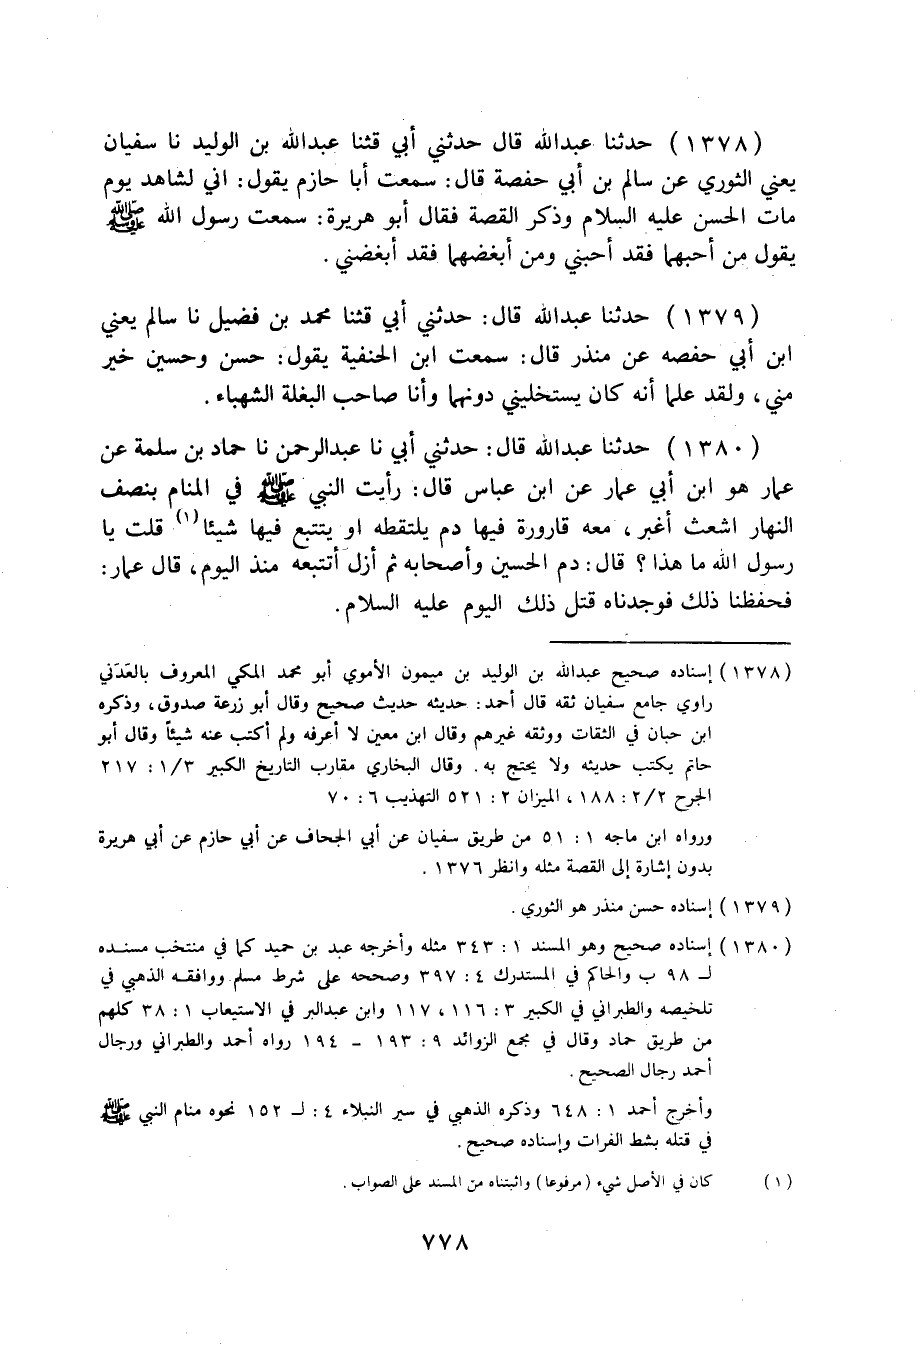 (١٣٧٨) حدثنا عبدالله قال حدثني أبي قثنا عبدالله بن الوليد نا سفيان
يعني الثوري عن سالم بن أبي حفصة قال: سمعت أبا حازم يقول: اني لشاهد يوم
مات الحسن عليه السلام وذكر القصة فقال أبو هريرة: سمعت رسول الله ﷺ
يقول من أحبهما فقد أحبني ومن أبغضهما فقد أبغضني.
(١٣٧٩) حدثنا عبدالله قال: حدثني أبي قثنا محمد بن فضيل نا سالم يعني
ابن أبي حفصه عن منذر قال: سمعت ابن الحنفية يقول: حسن وحسين خير
مني، ولقد علما أنه كان يستخليني دونهما وأنا صاحب البغلة الشهباء.
(١٣٨٠) حدثنا عبدالله قال: حدثني أبي نا عبدالرحمن نا حماد بن سلمة عن
عمار هو ابن أبي عمار عن ابن عباس قال: رأيت النبي ﷺ في المنام بنصف
النهار اشعث أغبر، معه قارورة فيها دم يلتقطه او يتتبع فيها شيئا(١) قلت يا
رسول الله ما هذا؟ قال: دم الحسين وأصحابه ثم أزل أتتبعه منذ اليوم، قال عمار:
فحفظنا ذلك فوجدناه قتل ذلك اليوم عليه السلام.
(١٣٧٨) إسناده صحيح عبدالله بن الوليد بن ميمون الأموي أبو محمد المكي المعروف بالعَدَني
راوي جامع سفيان ثقه قال أحمد: حديثه حديث صحيح وقال أبو زرعة صدوق، وذكره
ابن حبان في الثقات ووثقه غيرهم وقال ابن معين لا أعرفه ولم أكتب عنه شيئاً وقال أبو
حاتم يكتب حديثه ولا يحتج به. وقال البخاري مقارب التاريخ الكبير ١/٣: ٢١٧
الجرح ٢/٢: ١٨٨، الميزان ٢: ٥٢١ التهذيب ٦: ٧٠
ورواه ابن ماجه ١: ٥١ من طريق سفيان عن أبي الجحاف عن أبي حازم عن أبي هريرة
بدون إشارة إلى القصة مثله وانظر ١٣٧٦.
(١٣٧٩) إسناده حسن منذر هو الثوري.
(١٣٨٠) إسناده صحيح وهو المسند ١: ٣٤٣ مثله وأخرجه عبد بن حميد كما في منتخب مسنده
لـ ٩٨ ب والحاكم في المستدرك ٤: ٣٩٧ وصححه على شرط مسلم ووافقه الذهبي في
تلخيصه والطبراني في الكبير ٣: ١١٦، ١١٧ وابن عبدالبر في الاستيعاب ١: ٣٨ كلهم
من طريق حماد وقال في مجمع الزوائد ٩: ١٩٣ ــ ١٩٤ رواه أحمد والطبراني ورجال
أحمد رجال الصحيح.
وأخرج أحمد ١: ٦٤٨ وذكره الذهبي في سير النبلاء ٤: لـ ١٥٢ نحوه منام النبي ﷺ
في قتله بشط الفرات وإسناده صحيح.
(١) كان في الأصل شيء (مرفوعا) واثبتناه من المسند على الصواب.
٧٧٨